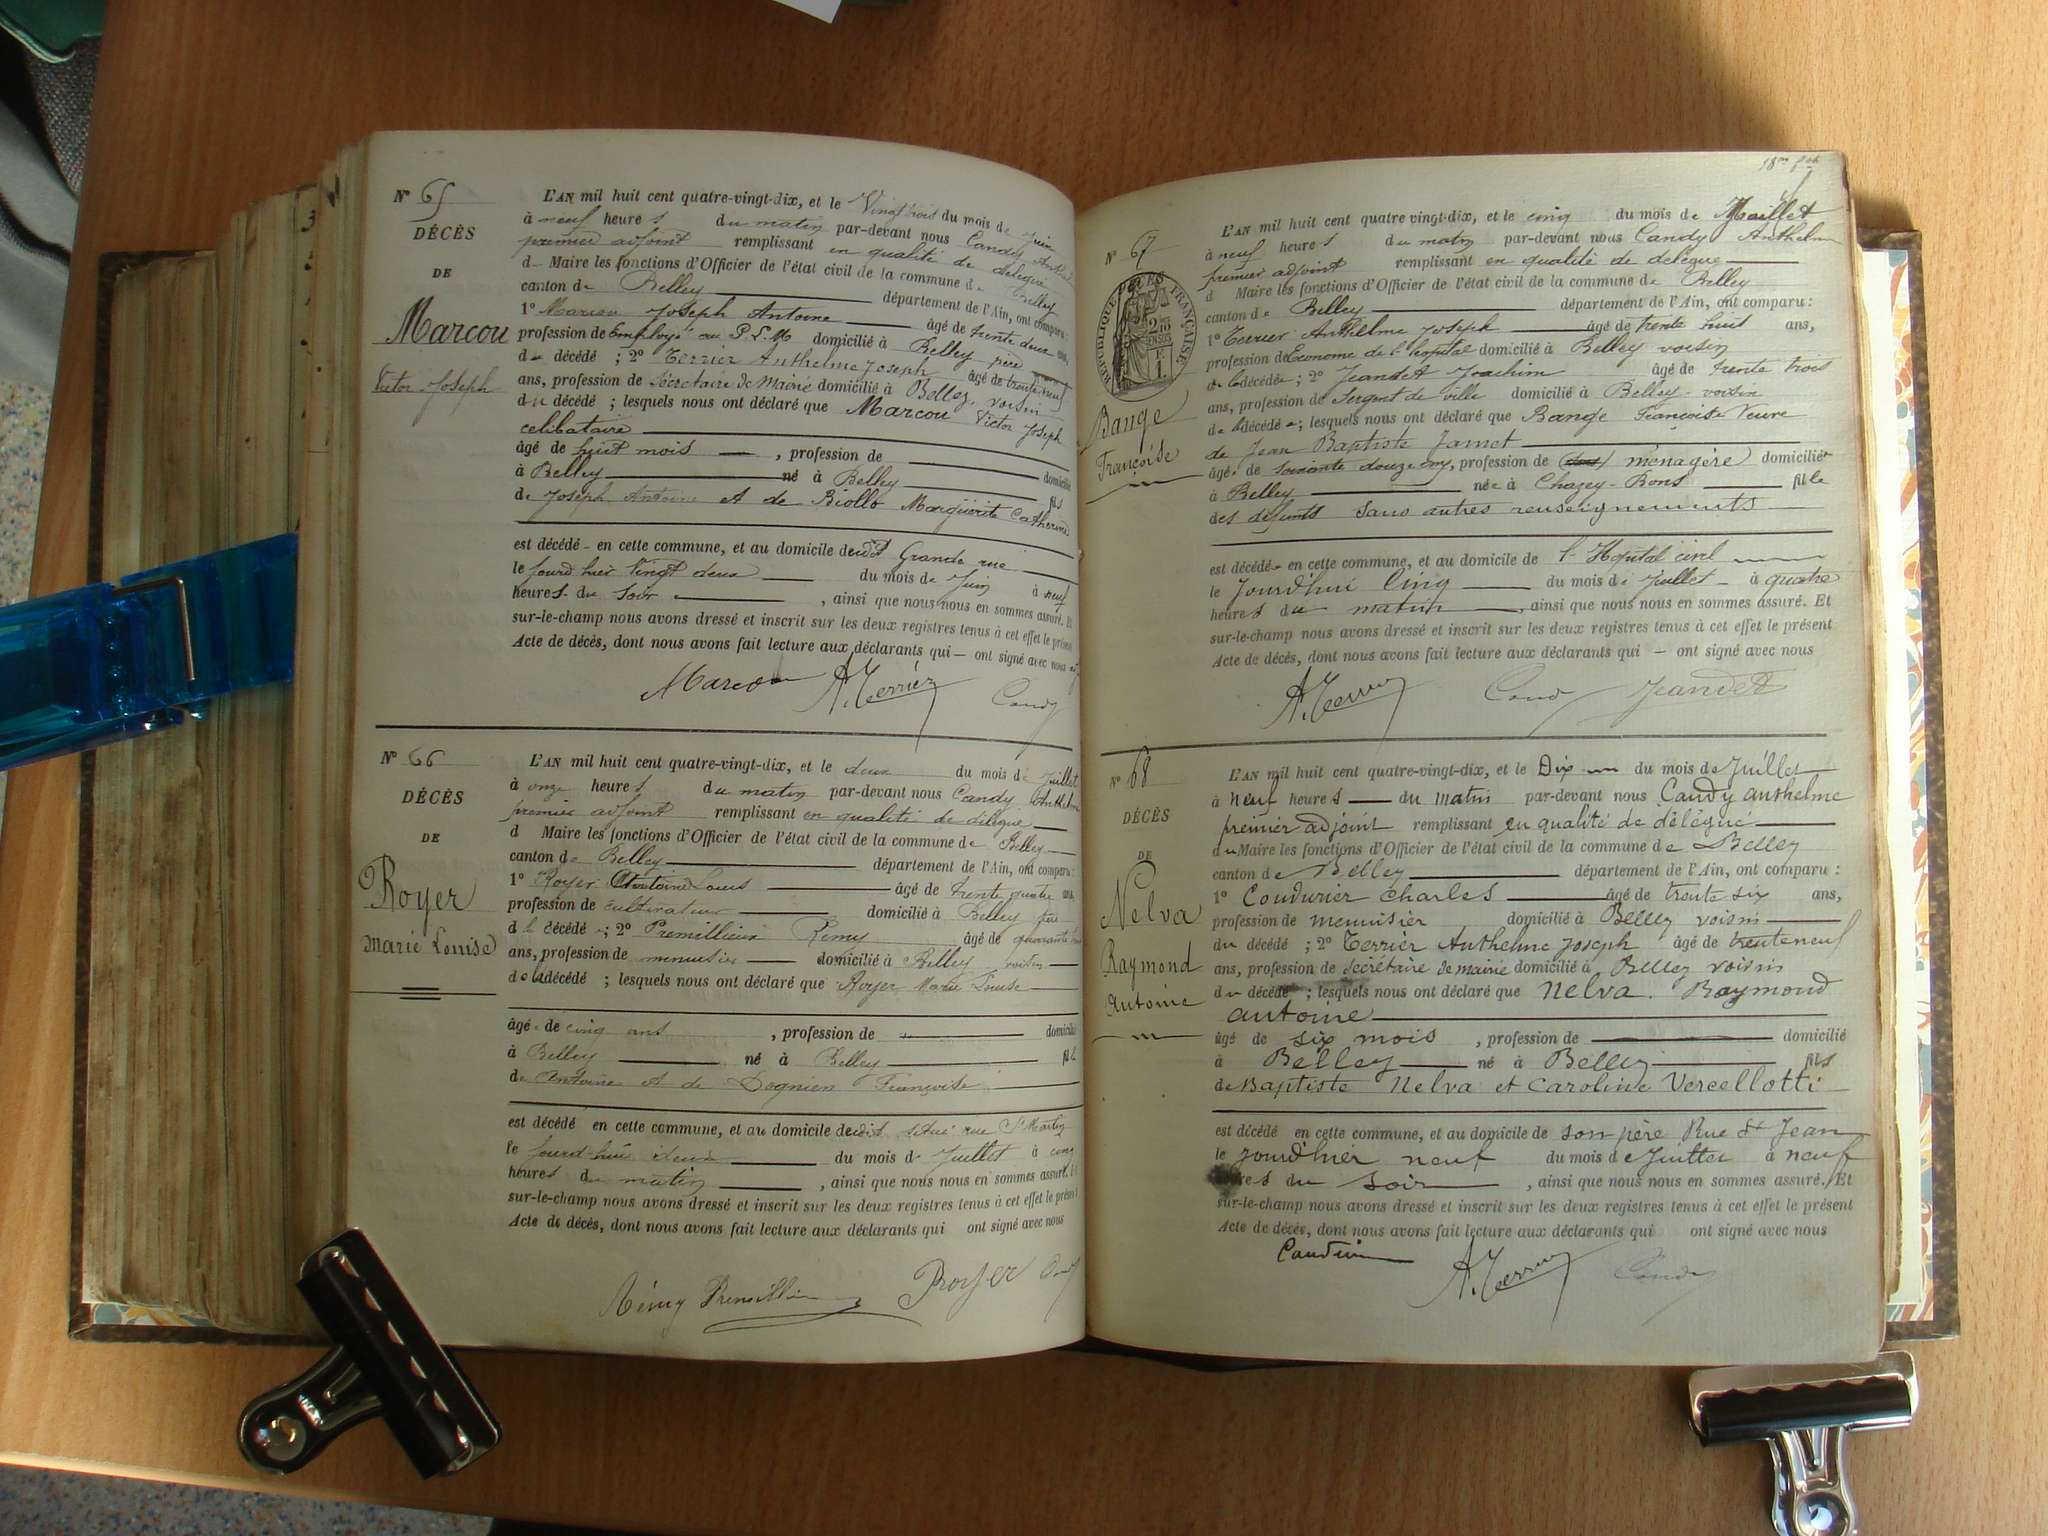 N° 65
DÉCÈS
DE
Marcou
Victor Joseph
L'AN mil huit cent quatre-vingt-dix, et le Vingt trois du mois de Juin
à neuf heures du matin par-devant nous Candy Anthelme
premier adjoint remplissant en qualité de délégué
d Maire les fonctions d'Officier de l'état civil de la commune de Belley
canton de Belley département de l'Ain, ont comparu :
1° Marcou Joseph Antoine âgé de trente deux ans,
profession de Employé au P.L.M domicilié à Belley père
du décédé ; 2° Terrier Anthelme Joseph âgé de trente neuf
ans, profession de Secrétaire de Mairie domicilié à Belley, voisin
du décédé ; lesquels nous ont déclaré que Marcou Victor Joseph
celibataire
âgé de huit mois , profession de
à Belley né à Belley domicilié
de Joseph Antoine et de Biollo Marguerite Catherine fils
est décédé en cette commune, et au domicile dudit Grande rue
le jourd'hier Vingt deux du mois de Juin à neuf
heures du soir , ainsi que nous nous en sommes assuré. Et
sur-le-champ nous avons dressé et inscrit sur les deux registres tenus à cet effet le présent
Acte de décès, dont nous avons fait lecture aux déclarants qui — ont signé avec nous
Marcou A. Terrier Candy
N° 66
DÉCÈS
DE
Royer
Marie Louise
L'AN mil huit cent quatre-vingt-dix, et le deux du mois de Juillet
à onze heures du matin par-devant nous Candy Anthelme
premier adjoint remplissant en qualité de délégué
d Maire les fonctions d'Officier de l'état civil de la commune de Belley
canton de Belley département de l'Ain, ont comparu :
1° Royer Antoine Louis âgé de trente quatre ans
profession de cultivateur domicilié à Belley père
d la décédée ; 2° Premillieux Rémy âgé de quarante
ans, profession de menuisier domicilié à Belley voisin
de la décédé ; lesquels nous ont déclaré que Royer Marie Louise
âgée de cinq ans , profession de domicilié
à Belley né à Belley fille
de Antoine et de Dognien Françoise
est décédé en cette commune, et au domicile dudit situé rue St Martin
le jourd'hui deux du mois de Juillet à cinq
heures du matin , ainsi que nous nous en sommes assuré. Et
sur-le-champ nous avons dressé et inscrit sur les deux registres tenus à cet effet le présent
Acte de décès, dont nous avons fait lecture aux déclarants qui ont signé avec nous
Rémy Premillieux Royer Candy
N° 67
RÉPUBLIQUE FRANÇAISE
Bange
Françoise
L'AN mil huit cent quatre vingt-dix, et le cinq du mois de Juillet
à neuf heures du matin par-devant nous Candy Anthelme
premier adjoint remplissant en qualité de délégué
d Maire les fonctions d'Officier de l'état civil de la commune de Belley
canton de Belley département de l'Ain, ont comparu :
1° Terrier Anthelme Joseph âgé de trente huit ans,
profession de Econome de l'hopital domicilié à Belley voisin
de la décédée ; 2° Jeandet Joachim âgé de trente trois
ans, profession de Sergent de ville domicilié à Belley voisin
de la décédée ; lesquels nous ont déclaré que Bange Françoise Veuve
de Jean Baptiste Jamet
âgée de soixante douze ans, profession de ménagère domiciliée
à Belley née à Chazey-Bons fille
des défunts sans autres renseignements
est décédée en cette commune, et au domicile de l'Hopital civil
le Jourd'hui Cinq du mois de Juillet à quatre
heures du matin , ainsi que nous nous en sommes assuré. Et
sur-le-champ nous avons dressé et inscrit sur les deux registres tenus à cet effet le présent
Acte de décès, dont nous avons fait lecture aux déclarants qui — ont signé avec nous
A. Terrier Candy Jeandet
N° 68
DÉCÈS
DE
Nelva
Raymond
Antoine
L'AN mil huit cent quatre-vingt-dix, et le Dix du mois de Juillet
à neuf heures du matin par-devant nous Candy anthelme
premier adjoint remplissant en qualité de délégué
du Maire les fonctions d'Officier de l'état civil de la commune de Belley
canton de Belley département de l'Ain, ont comparu :
1° Coudurier Charles âgé de trente six ans,
profession de menuisier domicilié à Belley voisin
du décédé ; 2° Terrier Anthelme Joseph âgé de trenteneuf
ans, profession de secrétaire de mairie domicilié à Belley voisin
du décédé ; lesquels nous ont déclaré que Nelva Raymond
antoine
âgé de six mois , profession de domicilié
à Belley né à Belley fils
de Baptiste Nelva et Caroline Vercellotti
est décédé en cette commune, et au domicile de son père Rue St Jean
le jourd'hier neuf du mois de Juillet à neuf
heures du soir , ainsi que nous nous en sommes assuré. Et
sur-le-champ nous avons dressé et inscrit sur les deux registres tenus à cet effet le présent
Acte de décès, dont nous avons fait lecture aux déclarants qui ont signé avec nous
A. Terrier Candy